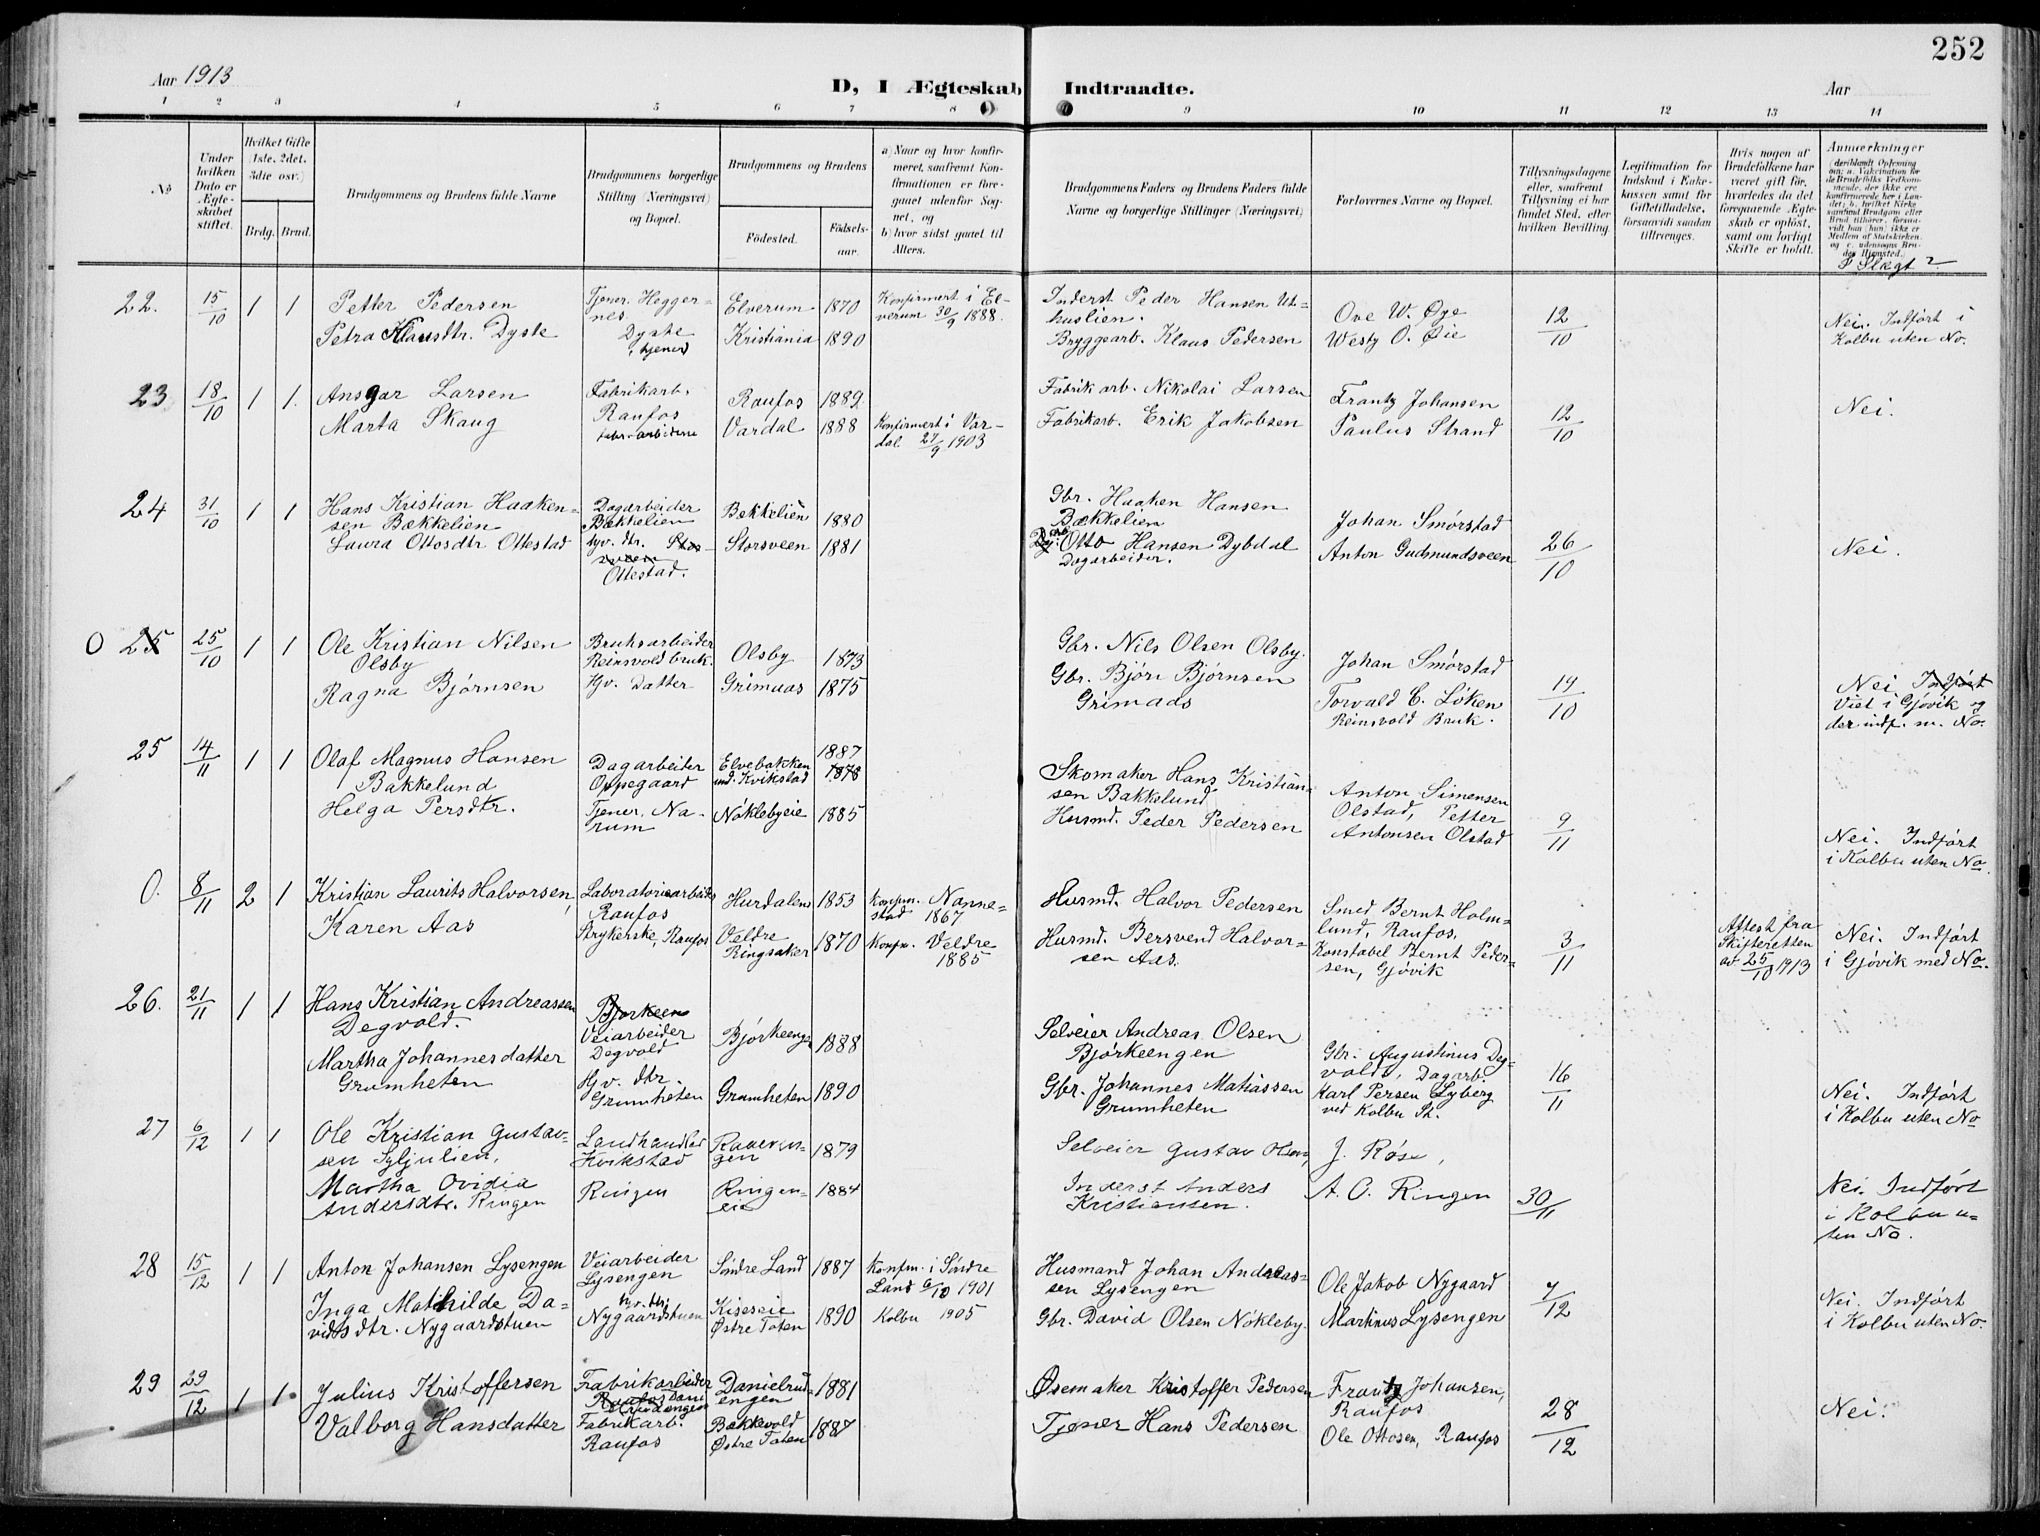 252
Aar 1913
D, I Ægteskab Indtraadte.
Aar
1 2 3 4 5 6 7 8 9 10 11 12 13 14
No
Under hvilken Dato er Ægteskabet stiftet.
Hvilket Gifte 1ste, 2det, 3die osv.)
Brdg. Brud.
Brudgommens og Brudens fulde Navne
Brudgommens borgerlige Stilling (Næringsvei) og Bopæl.
Brudgommens og Brudens
Fødested.
Fødselsaar.
a) Naar og hvor konfirmeret, saafremt Konfirmationen er foregaaet udenfor Sognet, og
b) hvor sidst gaaet til Alters.
Brudgommens Faders og Brudens Faders fulde Navne og borgerlige Stillinger (Næringsvei)
Forlovernes Navne og Bopæl.
Tillysningsdagene eller, saafremt Tillysning ei har fundet Sted, efter hvilken Bevilling.
Legitimation for Indskud i Enkekassen samt for Giftetilladelse, forsaavidt saadan tiltrænges.
Hvis nogen af Brudefolkene har været gift før, hvorledes da det foregaaende Ægteskab er opløst, samt om lovligt Skifte er holdt.
Anmærkninger
(deriblandt Oplysning om: a. Vakcination for de Brudefolks Vedkommende, der ikke ere konfirmerede her i Landet; b. hvilket Kirkesamfund Brudgom eller Brud tilhører, forsaavidt han (hun) ikke er Medlem af Statskirken, og c. udensogns Brudes Hjemsted.
I Slægt?
22. 15/10 1 1 Petter Pedersen
Tjener Heggernes
Elverum 1870
Konfirmert i Elverum 30/9 1888.
Inderst Peder Hansen Uthuslien.
Ove W. Øye
12/10
Nei. Indført i Kolbu uten No.
Petra Klausdtr. Dyste
Dyste tjener
Kristiania 1890
Bryggearb. Klaus Pedersen
Westy O. Øie
23 18/10 1 1. Ansgar Larsen
Fabrikarb. Raufos
Raufos 1889
Fabrikarb. Nikolai Larsen
Frantz Johansen
12/10
Nei.
Marta Skaug
fabr-arbeiderse
Vardal 1888
Konfirmert i Vardal 27/9 1903
Fabrikarb. Erik Jakobsen
Paulus Strand
24 31/10 1 1 Hans Kristian Haakensen Bækkelien
Dagarbeider Bækkelien
Bekkelien 1880
Gbr. Haaken Hansen Bækkelien
Johan Smørstad
26/10
Nei.
Laura Ottosdtr Ottestad
hjv. dtr. Storsveen Ottestad.
Storsveen 1881
Otto Hansen Dybdal Dagarbeider.
Anton Gudmundsveen
O 25 25/10 1 1 Ole Kristian Nilsen Olsby
Bruksarbeider Reinsvold bruk.
Olsby 1873
Gbr. Nils Olsen Olsby.
Johan Smørstad
19/10
Nei Indført
Viet i Gjøvik og der indf. m. No.
Ragna Bjørnsen
Hjv. Datter
Grimaas 1875
Gbr. Bjørn Bjørnsen Grimaas
Torvald C. Løken Reinsvold Bruk.
25 14/11 1 1 Olaf Magnus Hansen Bakkelund
Dagarbeider Oppegaard
Elvebakken und. Kvikstad 1887 1878
Skomaker Hans Kristiansen Bakkelund
Anton Simensen Olstad, Petter Antonsen Olstad
9/11
Nei. Indført i Kolbu uten No.
Helga Persdtr.
Tjener, Narum
Nøklebyeie 1885
Husmd. Peder Pedersen
O. 8/11 2 1 Kristian Laurits Halvorsen,
Laboratoriearbeider Raufos
Hurdalen 1853
Konfm. Nannestad 1867
Husmd. Halvor Pedersen
Smed Bernt Holmlund, Raufos,
3/11
Attest fra Skifteretten av 25/10 1913
Nei. Indført i Gjøvik med No.
Karen Aas
Strykerske, Raufos
Veldre Ringsaker 1870
Konfm. Veldre 1885
Husmd. Bersvend Halvorsen Aas.
Konstabel Bernt Pedersen, Gjøvik
26. 21/11 1 1 Hans Kristian Andreassen Degvold.
Bjørkeen Veiarbeider Degvold
Bjørkeengn 1888
Selveier Andreas Olsen Bjørkeengen
Gbr. Augustinus Degvold, Dagarb. Karl Persen Lyberg ved Kolbu St.
16/11
Nei. Indført i Kolbu uten No
Martha Johannesdatter Grumheten
Hjv. dtr. Grumheten
Grumheten 1890
Gbr. Johannes Matiassen Grumheten
27 6/12 1 1 Ole Kristian Gustavsen Syljulien,
Landhandler Kvikstad
1879
Selveier Gustav Olsen,
J. Røse,
30/11
Nei. Indført i Kolbu uten No.
Martha Ovidia Andersdtr. Ringen
Ringen
Ringeneie 1884
Inderst Anders Kristiansen.
A. O. Ringen
28 15/12 1 1 Anton Johansen Lysengen
Veiarbeider Lysengen
Søndre Land 1887
Konfm. i Søndre Land 6/10 1901
Husmand Johan Andreassen Lysengen
Ole Jakob Nygaard
7/12
Nei. Indført i Kolbu uten No.
Inga Mathilde Davidsdtr. Nygaardstuen
hjv. dtr. Nygaardstuen
Kiseseie Østre Toten 1890
Kolbu 1905
Gbr. David Olsen Nøkleby.
Martinus Lysengen
29 29/12 1 1. Julius Kristoffersen
Fabrikarbeider Raufos Danielrudengen
Danielrudengen 1881
Øsemaker Kristoffer Pedersen
Frantz Johansen, Raufos
28/12
Nei.
Valborg Hansdatter
Fabrikarb. Raufos
Bækkevold Østre Toten 1887
Tjener Hans Pedersen
Ole Ottosen, Raufos